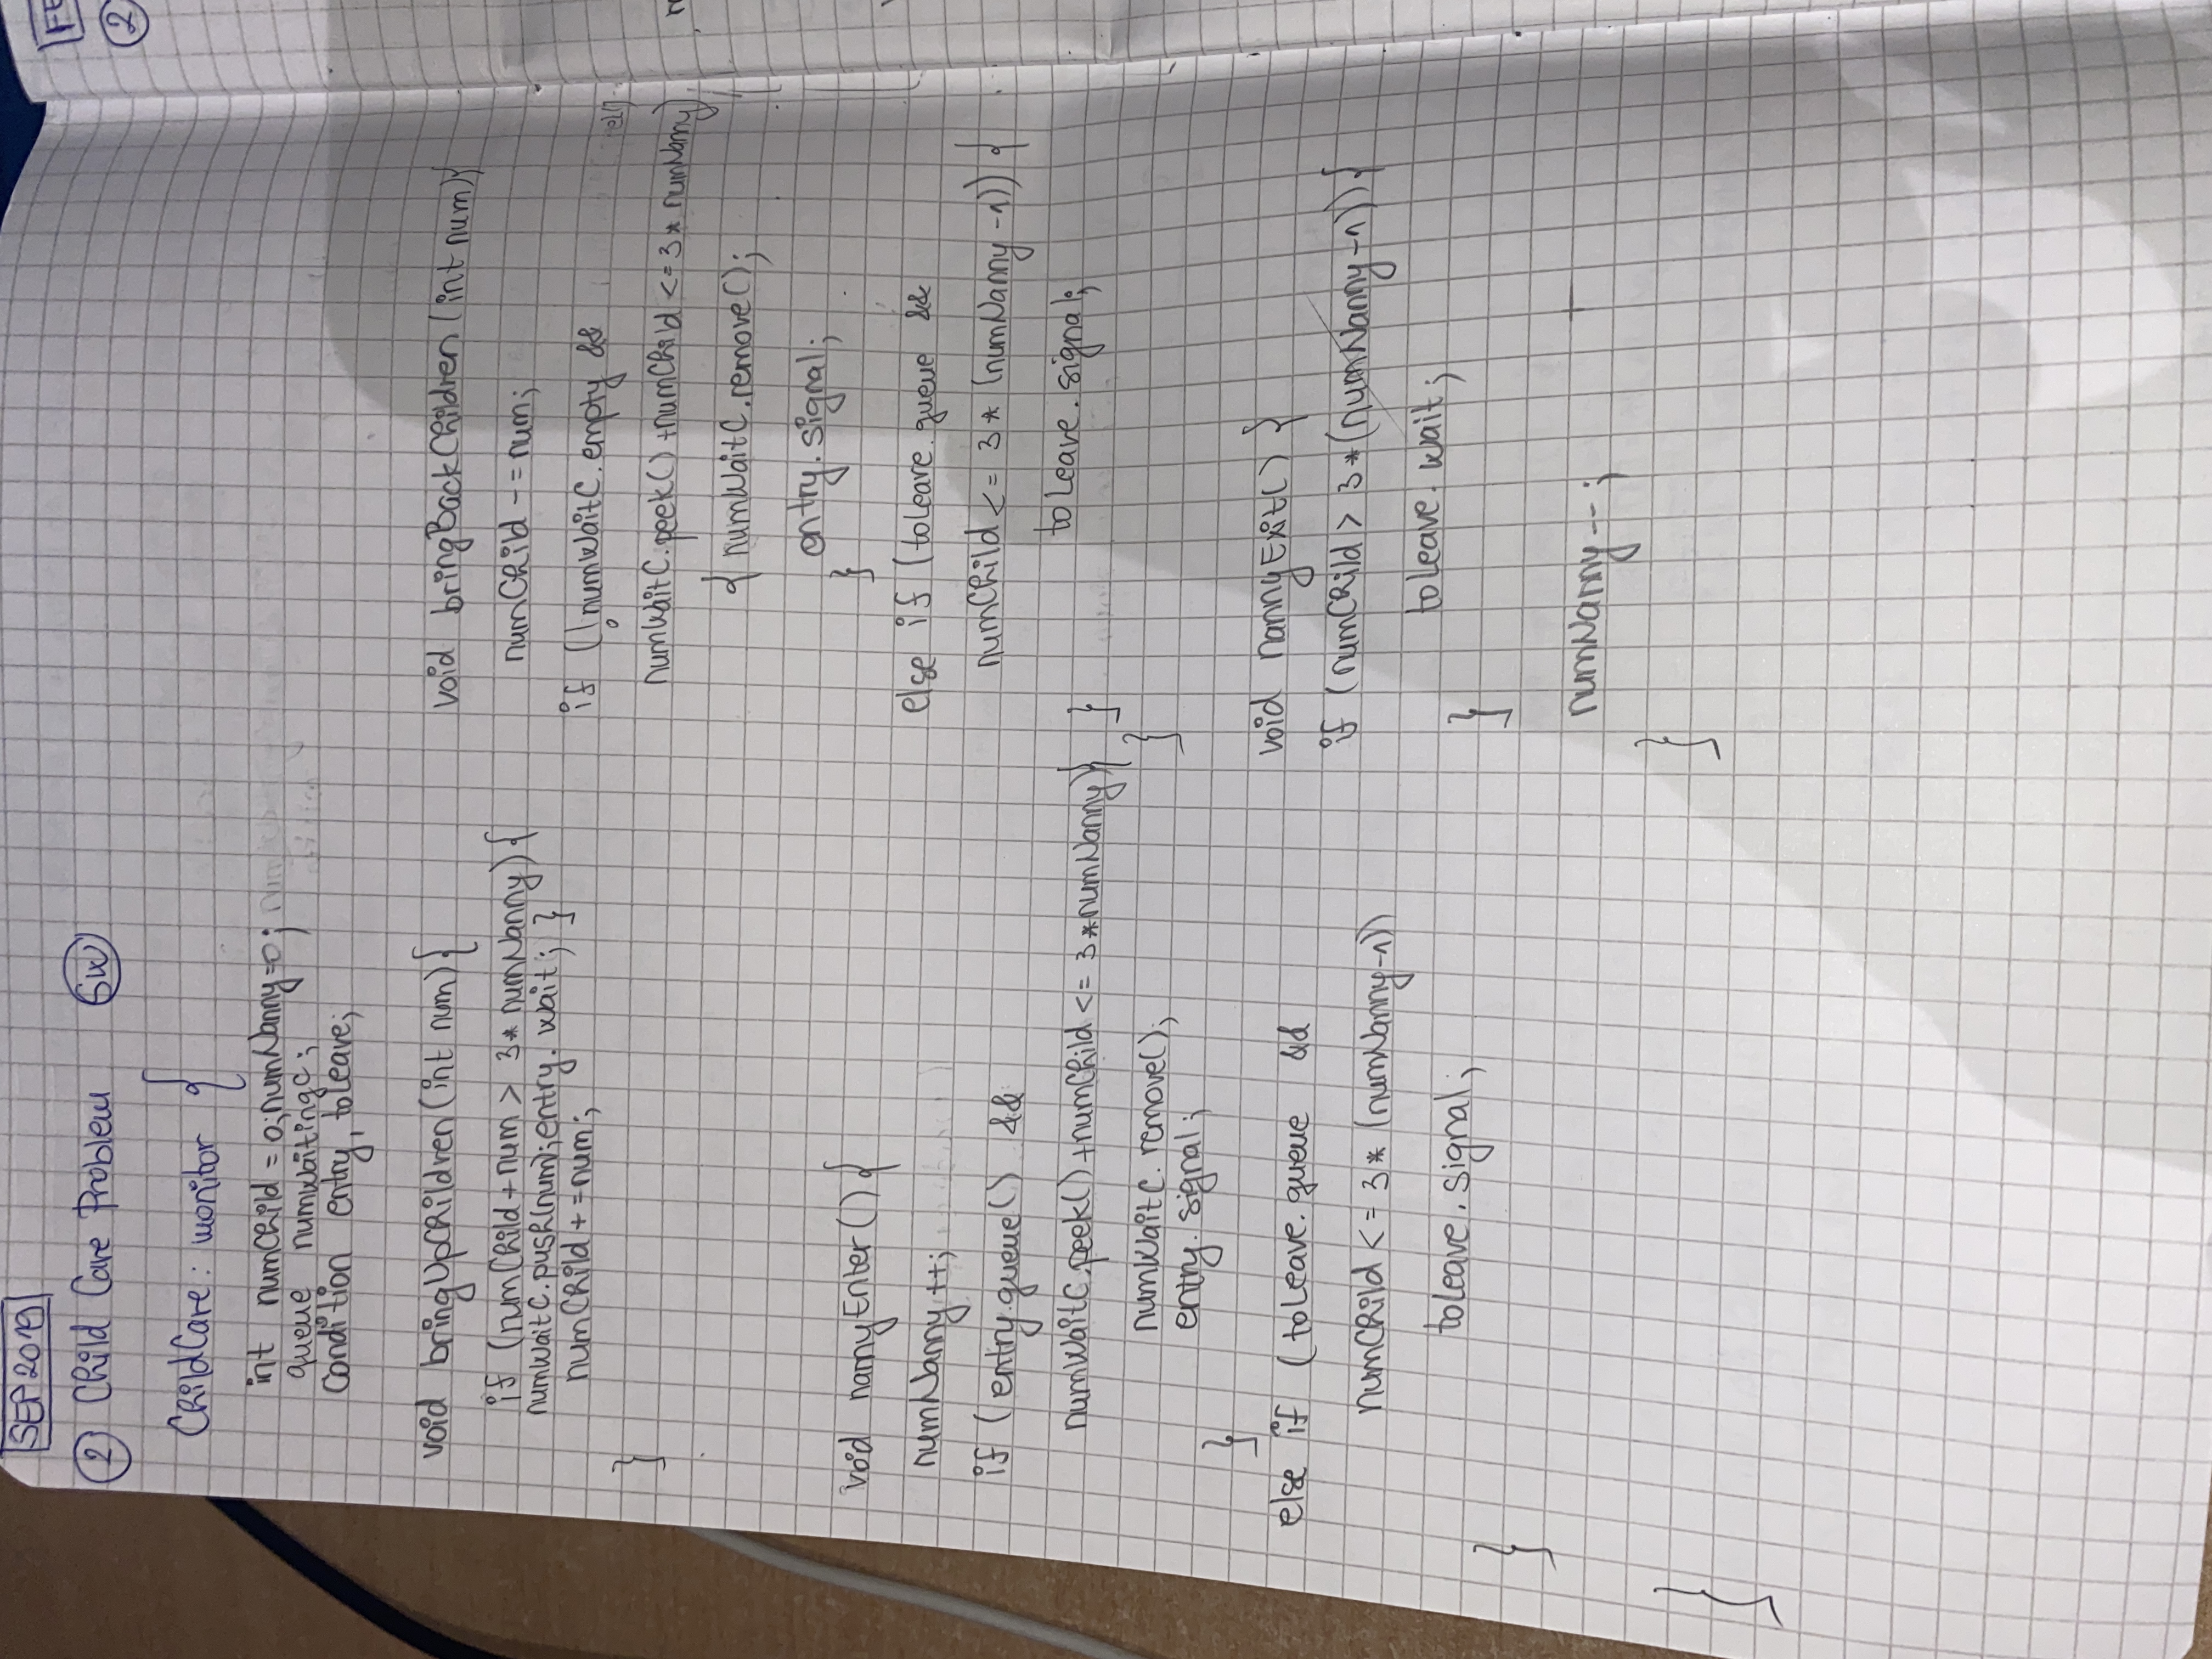 SEP 2019
2 Child Care Problem SW
ChildCare: monitor {
int numChild = 0; numNanny=0;
queue numWaitingC;
condition entry, toLeave;
void bringUpChildren (int num) {
if (numChild + num > 3 * numNanny) {
numWaitC.push(num); entry. wait; }
numChild += num;
}
void nannyEnter () {
numNanny ++;
if (entry.queue() &&
numWaitC.peek() + numChild <= 3*numNanny) {
numWaitC. remove();
entry. signal;
}
else if (toLeave. queue &&
numChild <= 3* (numNanny-1))
toLeave. signal;
}
}
void bringBackChildren (int num) {
numChild -= num;
if (!numWaitC. empty &&
numWaitC.peek() + numChild <= 3* numNanny)
{ numWaitC.remove();
entry. signal;
}
else if (toLeave. queue &&
numChild <= 3* (numNanny-1)) {
toLeave. signal;
}
}
void nannyExit() {
if (numChild > 3* (numNanny-1)) {
toLeave. wait;
}
numNanny--;
}
FE
2